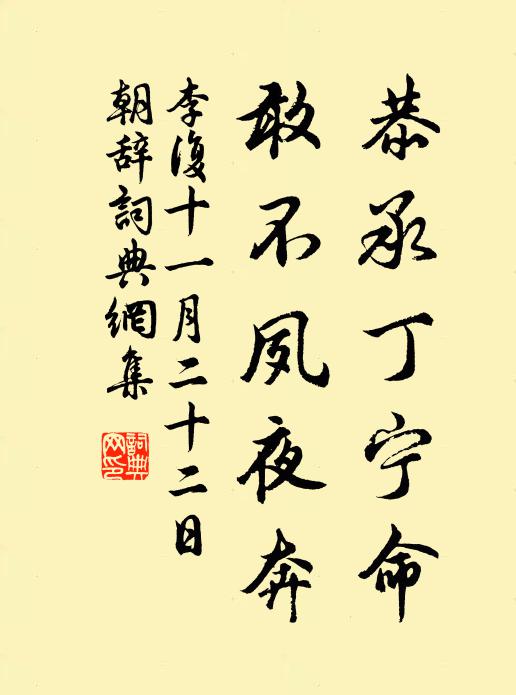 恭承丁宁命
敢不夙夜奔
李復十一月二十二日
朝辞詞典網集
詞典网印